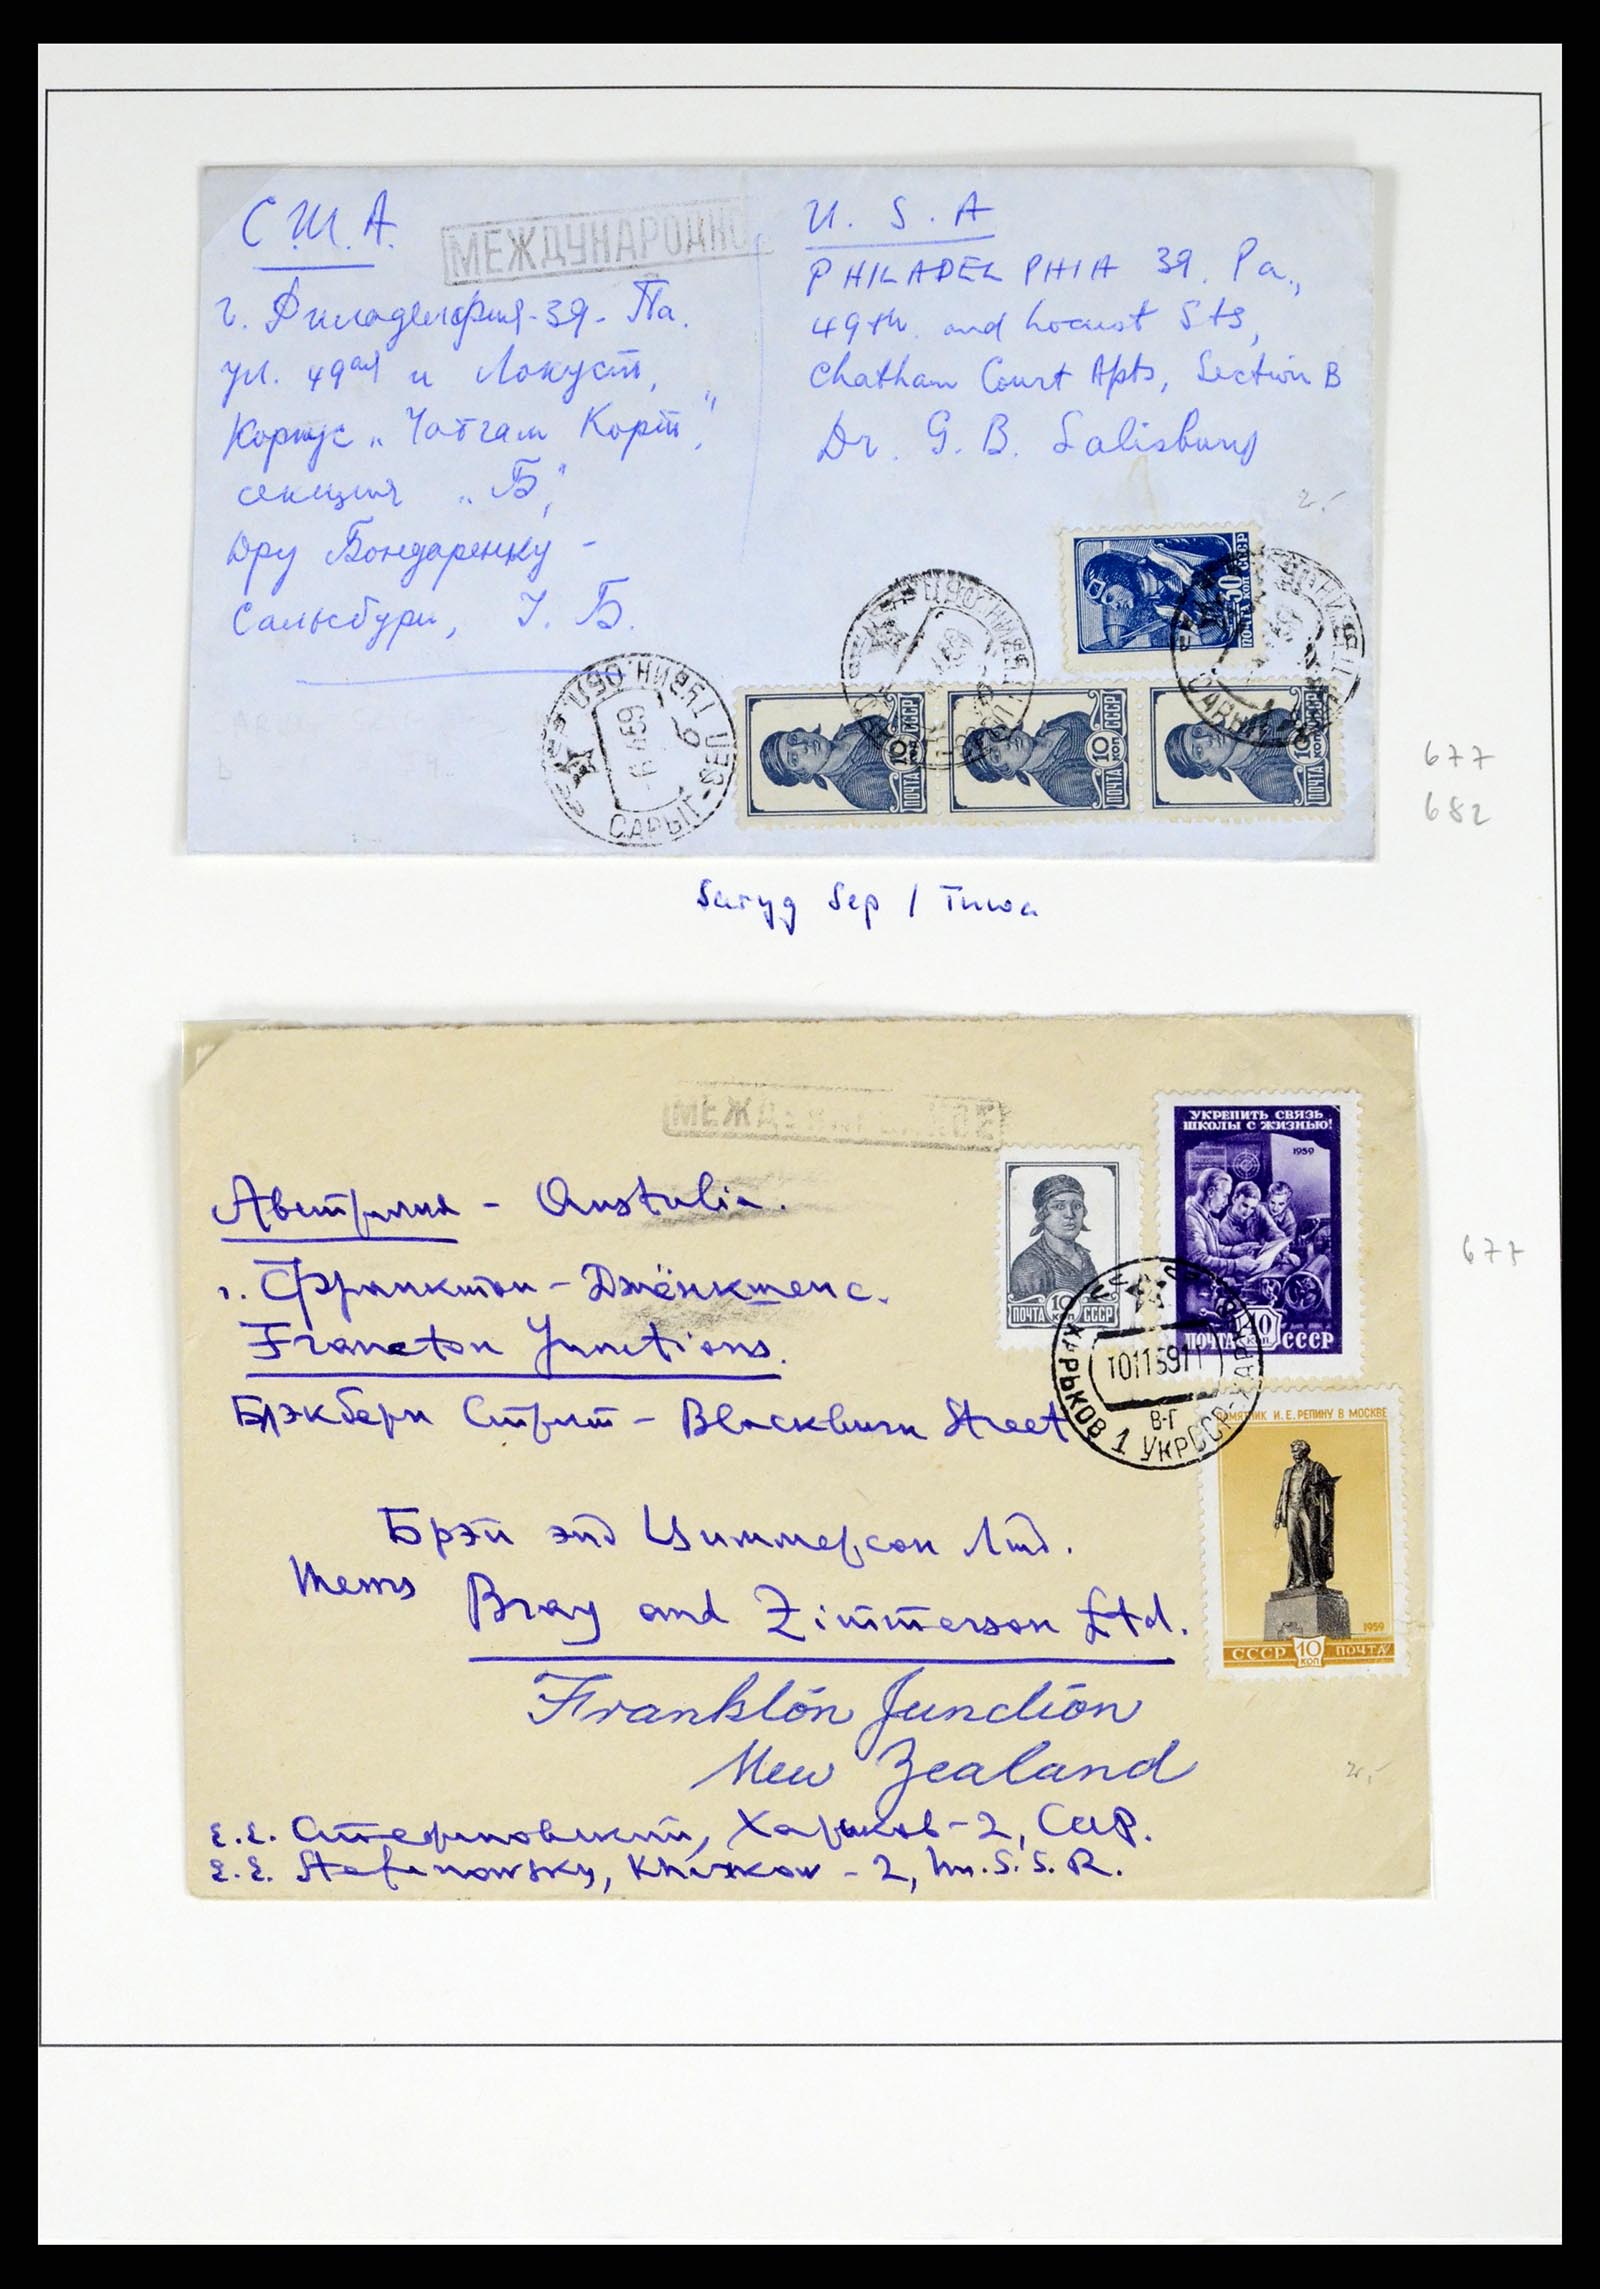 С.Ш.А.
МЕЖДУНАРОДНО
г. Филадельфия-39-Па.
ул. 49ая и Локуст,
Корпус „Чатгам Корт",
секция „Б",
Дру Бондаренку -
Сальсбури, Г. Б.
U. S. A
PHILADELPHIA 39. Pa.,
49th. and Locust Sts,
Chatham Court Apts, Section B
Dr. G. B. Salisbury
2.-
50
ПОЧТА КОП СССР
ПОЧТА 10 КОП СССР
ПОЧТА 10 КОП СССР
ПОЧТА 10 КОП СССР
САРЫГ-СЕП ТУВИН.ОБЛ.
677
682
Saryg Sep / Tuwa
УКРЕПИТЬ СВЯЗЬ
ШКОЛЫ С ЖИЗНЬЮ!
1959
ПОЧТА 10 КОП СССР
ПОЧТА 10 КОП СССР
Австрлия - Australia.
г. Франктон - Дженкшенс.
Francton Junctions.
677
Блэкберн Стрит - Blackburn Street
ХАРЬКОВ 1 УКРССР
10115911
В-Г
ПАМЯТНИК И.Е.РЕПИНУ В МОСКВЕ
1959
СССР 10 КОП ПОЧТА
Брэй энд Циммерсон Лтд.
Messrs Bray and Zimmerson Ltd.
Franklón Junction
New Zealand
2.-
Е.Е. Стефановский, Харьков-2, СССР.
E.E. Stefanowsky, Kharkow-2, U.S.S.R.